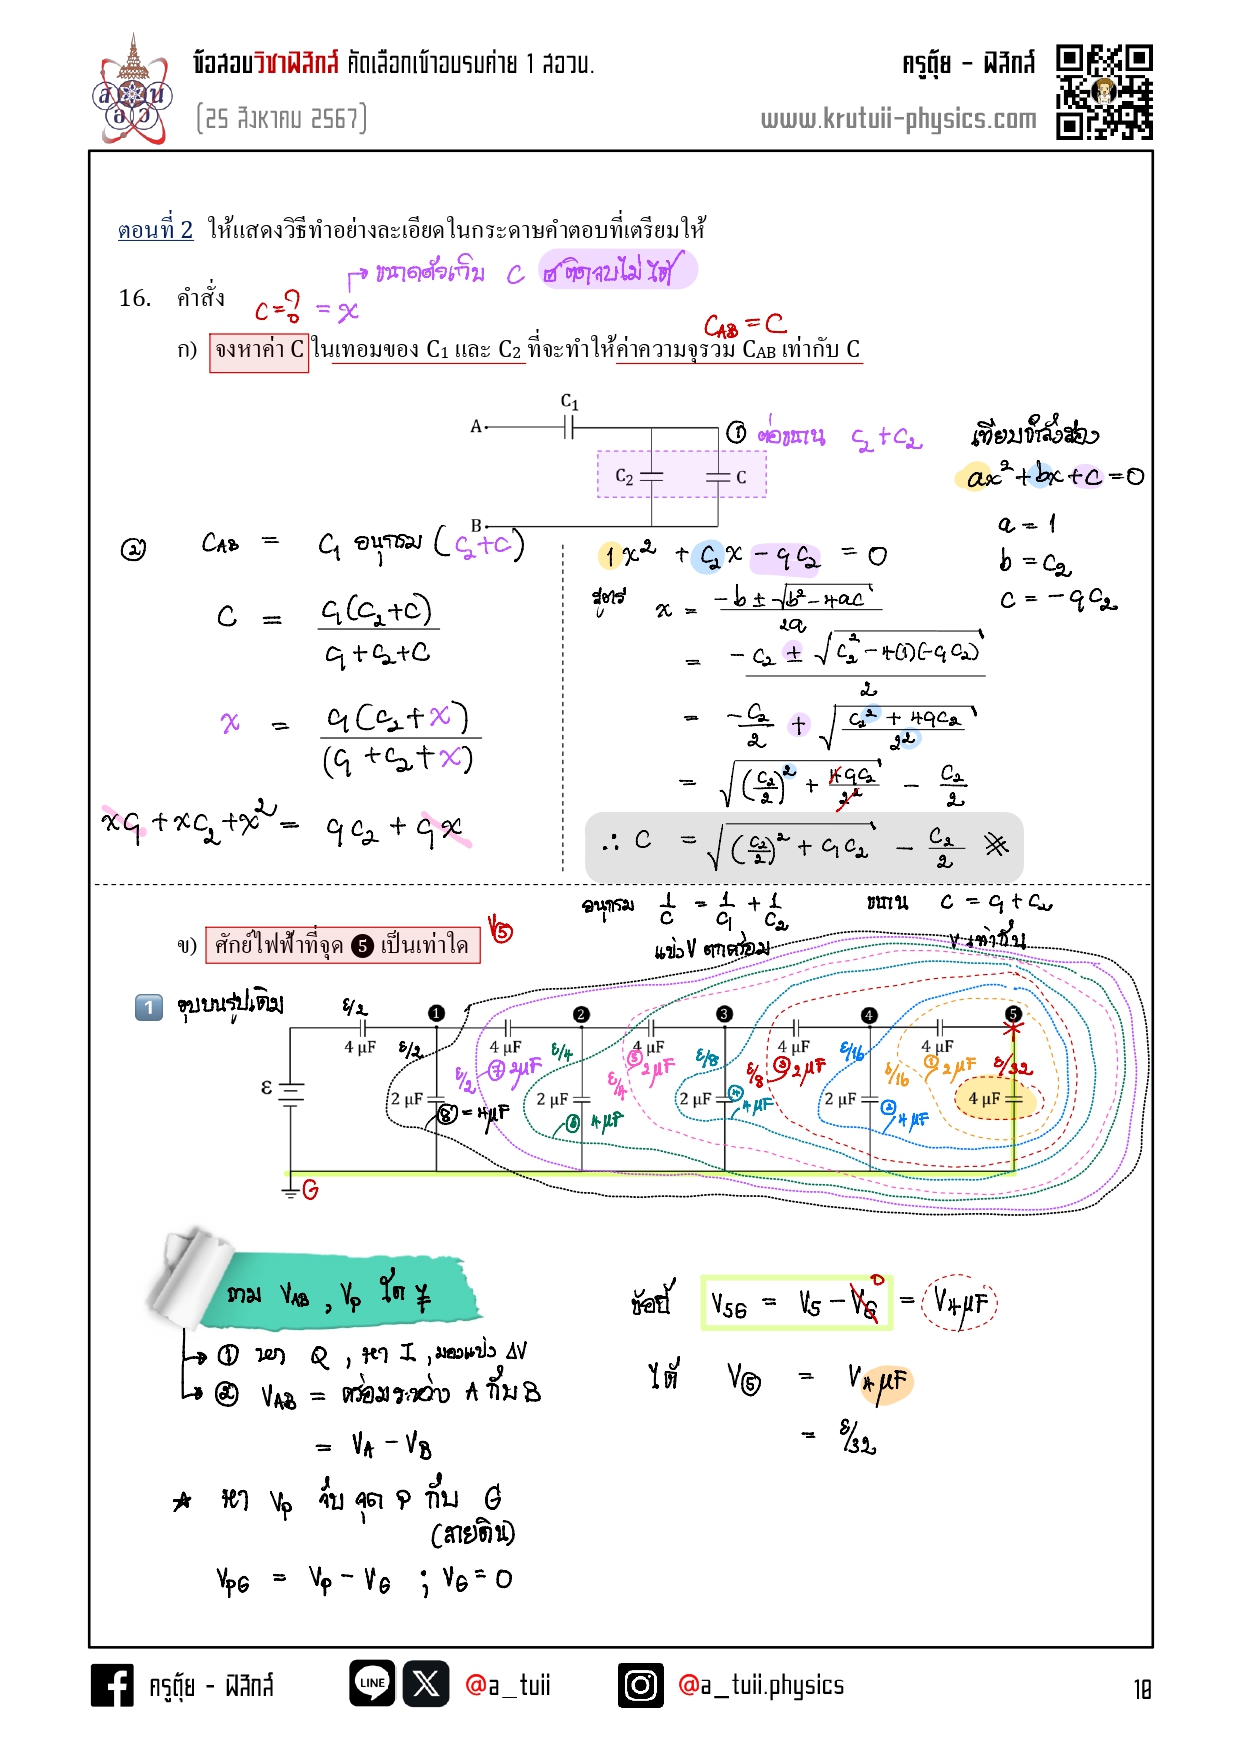 ข้อสอบวิชาฟิสิกส์ คัดเลือกเข้าอบรมค่าย 1 สอวน.
ครูตุ้ย - ฟิสิกส์
(25 สิงหาคม 2567)
www.krutuii-physics.com
ตอนที่ 2 ให้แสดงวิธีทำอย่างละเอียดในกระดาษคำตอบที่เตรียมให้
ขนาดตัวเก็บ C
ติดลบไม่ได้
16. คำสั่ง
C = ? = x
C_AB = C
ก) จงหาค่า C ในเทอมของ C₁ และ C₂ ที่จะทำให้ค่าความจุรวม C_AB เท่ากับ C
C₁
A
C₂
C
B
① ต่อขนาน C₂ + C₂
เทียบกำลังสอง
ax² + bx + c = 0
a = 1
b = C₂
c = -C₁C₂
② C_AB = C₁ อนุกรม (C₂+C)
C = C₁(C₂+C) / C₁+C₂+C
x = C₁(C₂+x) / (C₁+C₂+x)
xC₁ + xC₂ + x² = C₁C₂ + C₁x
1x² + C₂x - C₁C₂ = 0
สูตร x = -b ± √(b² - 4ac) / 2a
= -C₂ ± √(C₂² - 4(1)(-C₁C₂)) / 2
= -C₂/2 + √((C₂² + 4C₁C₂) / 2²)
= √((C₂/2)² + 4C₁C₂/2²) - C₂/2
∴ C = √((C₂/2)² + C₁C₂) - C₂/2
อนุกรม 1/C = 1/C₁ + 1/C₂
ขนาน C = C₁ + C₂
แบ่ง V ตกคร่อม
V เท่ากัน
ข) ศักย์ไฟฟ้าที่จุด ❺ เป็นเท่าใด
V⑤
1 ยุบบนรูปเดิม
ε/2 ❶ ❷ ❸ ❹ ❺
4 μF 4 μF 4 μF 4 μF 4 μF
ε/2 ε/4 ε/8 ε/16 ε/32
ε/2 ⑦ 2μF
ε/4 ⑤ 2μF
ε/8 ③ 2μF
ε/16 ① 2μF
ε
2 μF 2 μF 2 μF 2 μF 4 μF
⑧ = 4μF
⑥ 4μF
④ 4μF
② 4μF
G
ถาม V_AB , V_P ใด ๆ
① หา Q , หา I , มองแบ่ง ΔV
② V_AB = คร่อมระหว่าง A กับ B
= V_A - V_B
☆ หา V_P จับ จุด P กับ G
(สายดิน)
V_PG = V_P - V_G ; V_G = 0
ข้อนี้ V_5G = V_5 - V_G 0 = V_4μF
ได้ V⑤ = V_4μF
= ε/32
ครูตุ้ย - ฟิสิกส์
LINE
X
@a_tuii
@a_tuii.physics
18